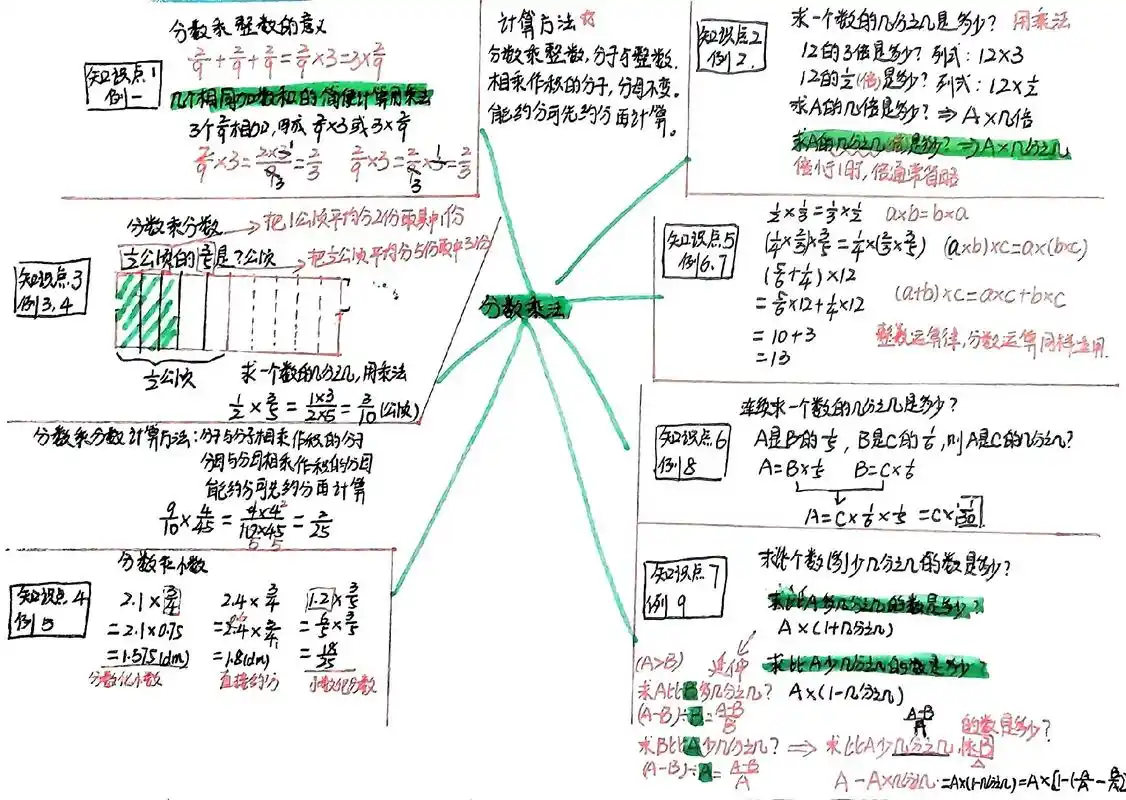 分数乘法
知识点1
例一
分数乘整数的意义
2/9+2/9+2/9=2/9×3=3×2/9
几个相同加数和的简便计算用乘法
2/9×3=2×3/9=2/3 2/9×3=2/9×1/3=2/3
计算方法
分数乘整数,分子与整数
相乘作积的分子,分母不变。
能约分可先约分再计算。
知识点2
例2
求一个数的几分之几是多少? 用乘法
12的3倍是多少? 列式:12×3
12的1/2(倍)是多少? 列式:12×1/2
求A的几倍是多少?⇒A×几倍
求A的几分之几是多少?⇒A×几分之几
倍小于1时,倍通常省略
知识点3
例3,4
分数乘分数 → 把1公顷平均分2份取其中1份
1/2公顷的3/5是?公顷 → 把1/2公顷平均分5份取中3份
1/2公顷
求一个数的几分之几,用乘法
1/2×3/5=1×3/2×5=3/10(公顷)
分数乘分数计算方法:分子与分子相乘作积的分子
分母与分母相乘作积的分母
能约分可先约分再计算
9/10×4/45= =2/25
知识点4
例5
分数乘小数
2.1×3/4 2.4×3/4 1.2×3/5
=2.1×0.75 =2.4×3/4 =6/5×3/5
=1.575(dm) =1.8(dm) =18/25
分数化小数 直接约分 小数化分数
知识点5
例6.7
1/2×1/3=1/3×1/2 a×b=b×a
(1/4×2/3)×3/5=1/4×(2/3×3/5) (a×b)×c=a×(b×c)
(5/6+1/4)×12
=5/6×12+1/4×12 (a+b)×c=a×c+b×c
=10+3 整数运算律,分数运算同样适用.
=13
知识点6
例8
连续求一个数的几分之几是多少?
A是B的1/5,B是C的1/6,则A是C的几分之几?
A=B×1/5 B=C×1/6
A=C×1/6×1/5 =C×1/30
知识点7
例9
求比个数(多)少几分之几的数是多少?
求比A多几分之几的数是多少?
A×(1+几分之几)
延伸
求比A少几分之几的数是多少?
A×(1-几分之几)
(A>B)
求A比B多几分之几?
(A-B)÷B=A-B/B
求B比A少几分之几?⇒求比A少几分之几 的数是多少?
(A-B)÷A=A-B/A
A-A×几分之几=A×(1-几分之几)